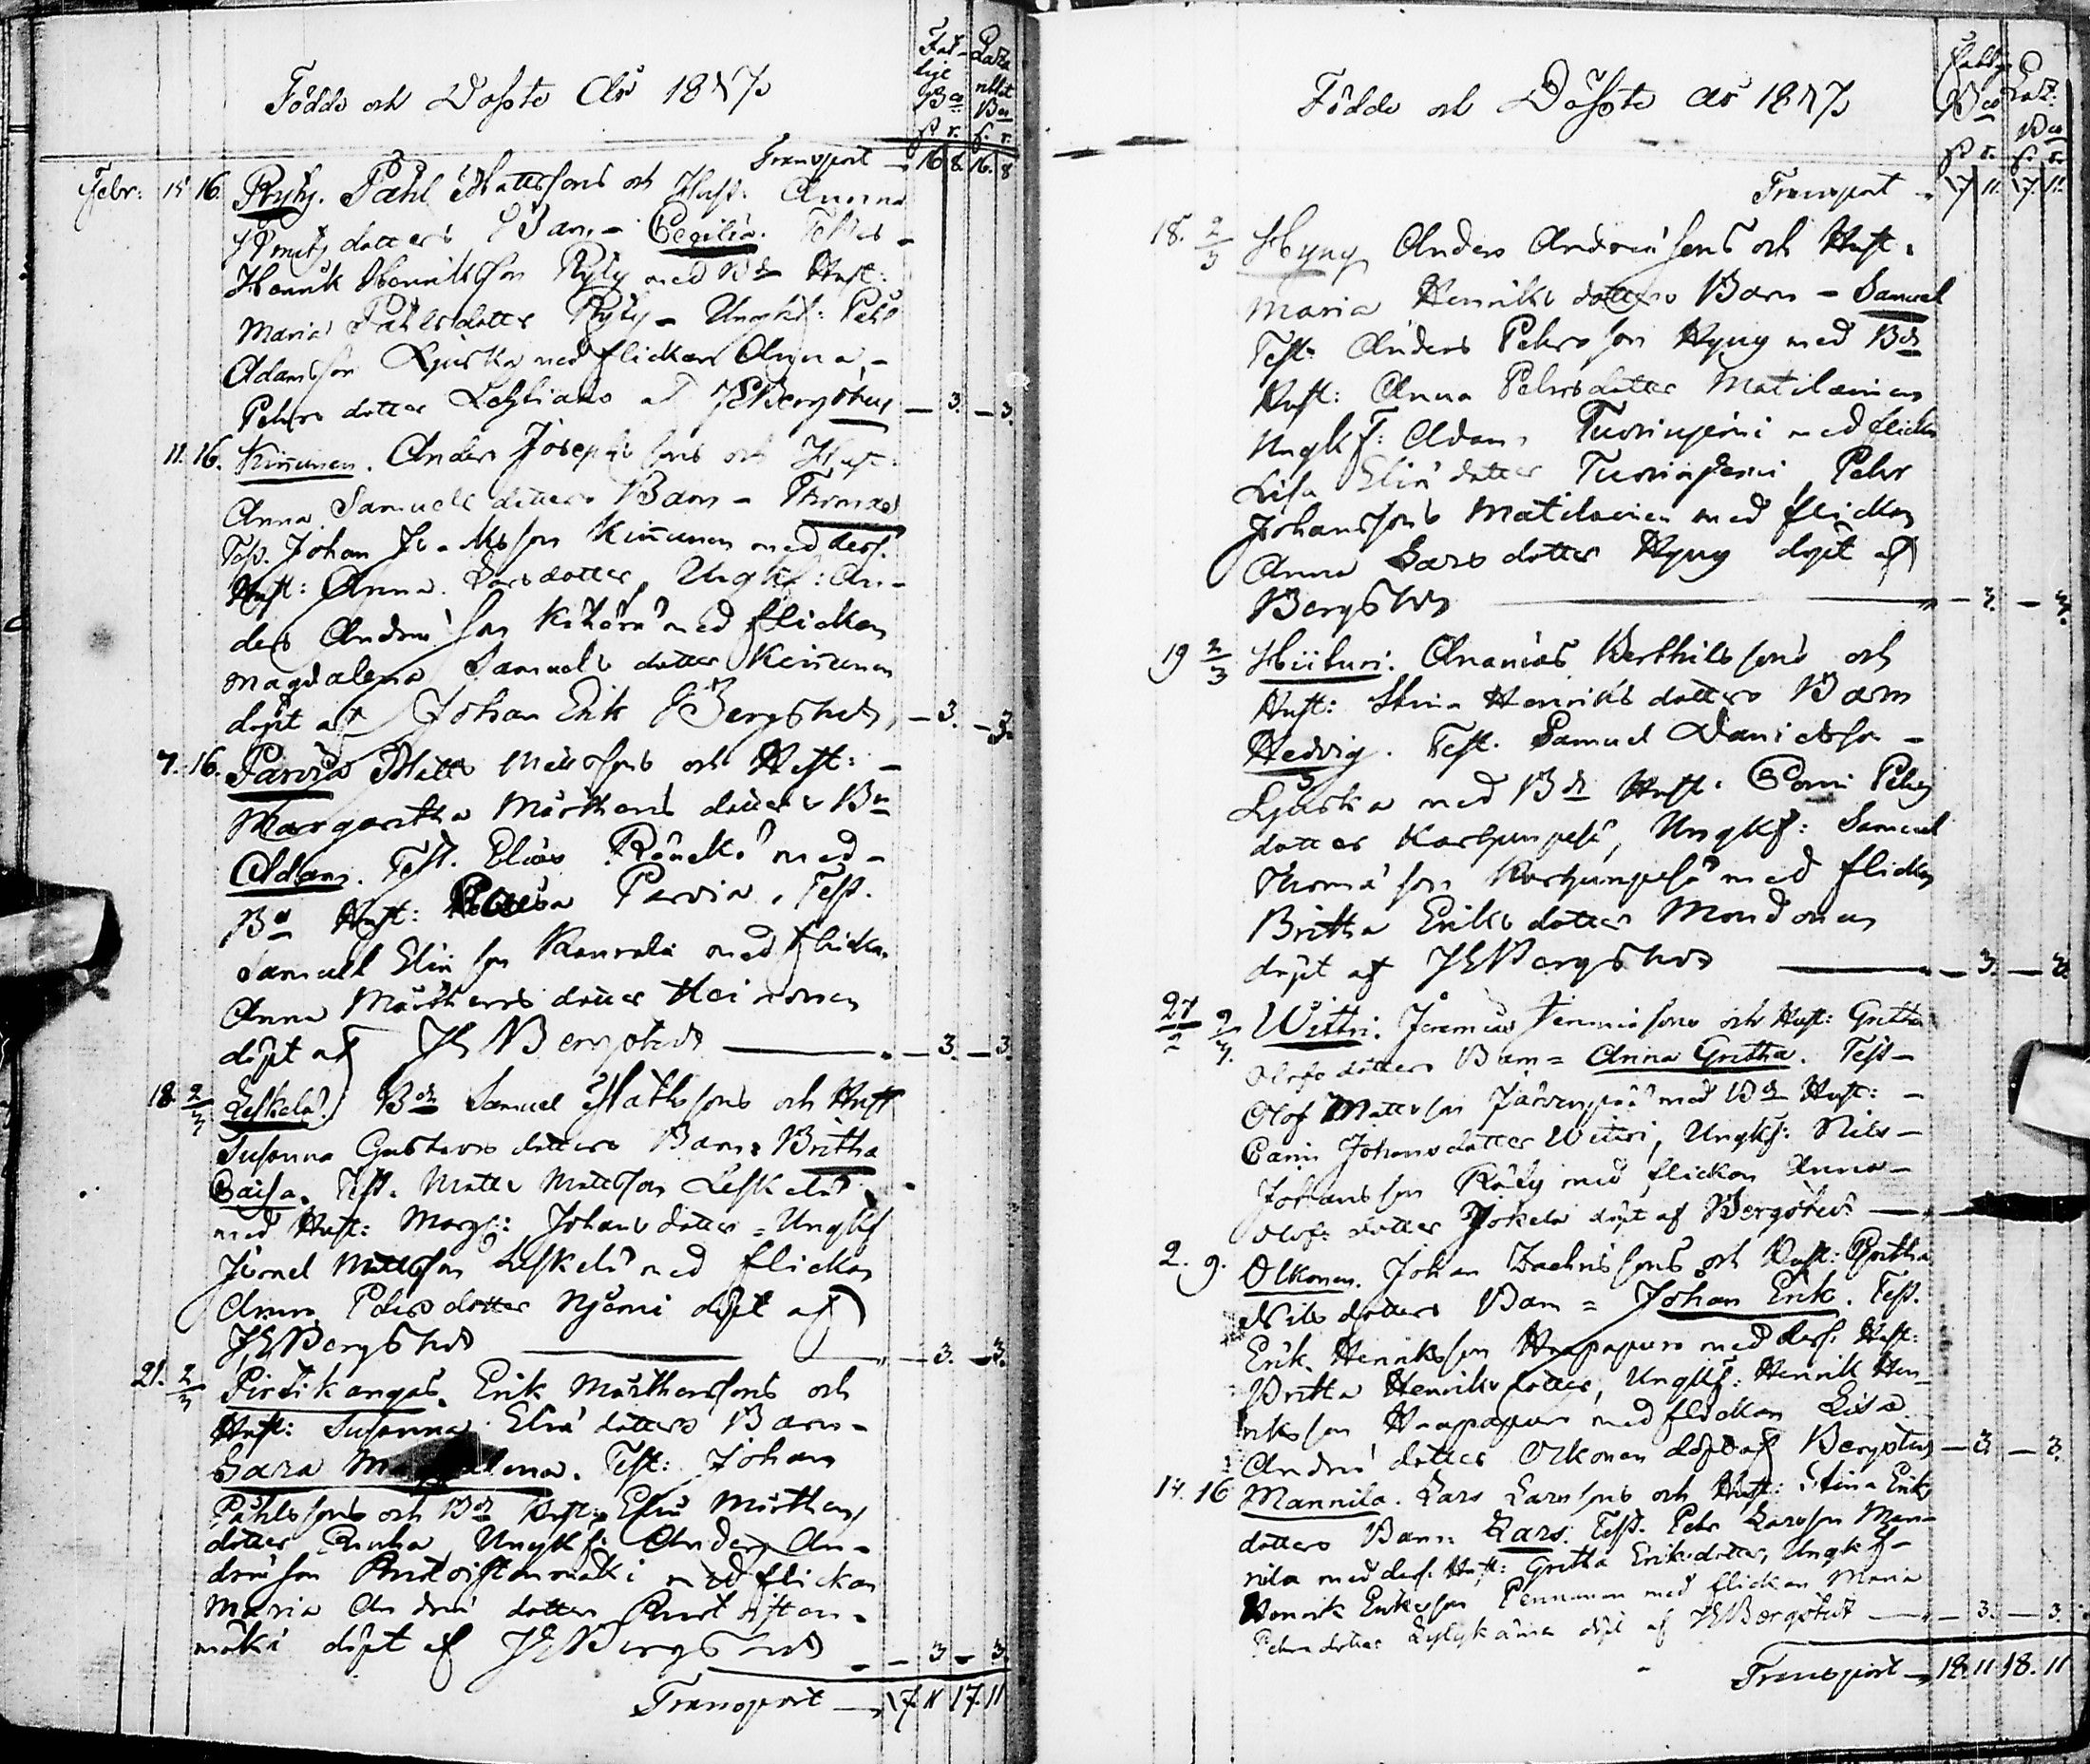 Födde och Döpte År 1847
Fat- Laza
tige rettet
Bco Bco
s. r. s. r.
Transport 16 8. 16. 8
Febr: 15 16. Ryhy. Påhl Mattssons och Hust. Anna
dotters Barn - Cecilia. Testes -
Henrik Henriksson Ryhy med Bdn Hust:
Maria Påhlsdotter Ryhy - Ungkf: Påhl
Adamsson Ljuska med flickan Anna, -
Pehrs dotter af JEBergstedt — 3. — 3.
11. 16. Kinnunen. Anders Josephssons och Hust:
Anna Samuels dotters Barn - Thomas
Test. Johan Kinnunen med dess
Hust: Anna Larsdotter, Ungkf: An-
ders Andrae son med flickan
Magdalena Samuels dotter Kinnunen
döpt af Johan Erik Bergstedt, — 3. — 3.
7. 16. Parvia Matts Matssons och Hust: -
Margaretha Mårthens dotters Bn
Adam. Test. Elias med -
Bd Hust: Parvia. Test.
Samuel Eliæ son med flickan
Anna Mårthens dotter Heinonen
döpt af JE Bergstedt — 3. — 3.
18. 2/3 Leskelä. Bdn Samuel Mathssons och Hust
Susanna Gustavs dotters Barn = Britha
Caisa. Test. Matts Mattsson Leskelä
med Hust: Marg: Johans dotter = Ungkf
Israel Mattsson Leskelä med flickan
Anna Pehrs dotter döpt af
JEBergstedt — 3. — 3.
21. 2/3 Pirtikangas. Erik Mårthenssons och
Hust: Susanna Eliæ dotters Barn -
Sara Magdalena. Test: Johan
Påhlssons och Bdn Hust: Mårthens
dotter Ungkf: Anders An-
dræ son med flickan
Maria Andræ dotter
mäki döpt af JEBergstedt — 3 — 3.
Transport — 17. 11 17. 11
Födde och Döpte År 1847
Bco Laz:
Bco
s. r. s. r.
Transport 17 11. 17. 11.
18. 2/3 Hyny Anders Andreæ sons och Hust.
Maria Henriks dotters Barn - Samuel
Test: Anders Pehrs son Hyny med Bdn
Hust: Anna Pehrsdotter Matilainen
Ungkf: Adam med flickan
Lisa Eliæ dotter Pehr
Johanssons Matilainen med flickan
Anna Lars dotter Hyny döpt af
Bergstedt — 3. — 3.
19 2/3 Hiituri. Ananias Berthilssons och
Hust: Stina Henriks dotters Barn
Hedvig. Test. Samuel Danielsson -
Ljuska med Bdn Hust. Carin Pehrs
dotter Karhunpesä, Ungkf: Samuel
Thomæ son Karhunpesä med flickan
Britha Eriks dotter Mondonen
döpt af JEBergstedt — 3. — 3.
27/2 9/3 Wittri. Jeremias sons och Hust: Gretha
Olofs dotters Barn = Anna Gretha. Test -
Olof Mattsson Järvenpää med Bdn Hust: -
Carin Johansdotter Wittri, Ungkf: Nils -
Johansson med flickan Anna -
Olofs dotter Jokela döpt af Bergstedt —
2. 9. Olkonen. Johan Zachrissons och Hust: Britha
Nils dotters Barn = Johan Erik. Test.
Erik Henriksson Haapapuro med dess Hust:
Britha Henriks dotter, Ungkf: Henrik Hen-
riksson Haapapuro med flickan Lisa
Andræ dotter Olkonen döpt af Bergstedt — 3 — 3.
14. 16 Mannila. Lars Larssons och Hust: Stina Eriks
dotters Barn: Lars. Test. Pehr Larsson Man-
nila med dess Hust: Gretha Eriksdotter, Ungkf -
Henrik Eriksson Pennanen med flickan Maria
Pehrs dotter döpt af JEBergstedt — 3. — 3.
Transport — 18. 11 18. 11